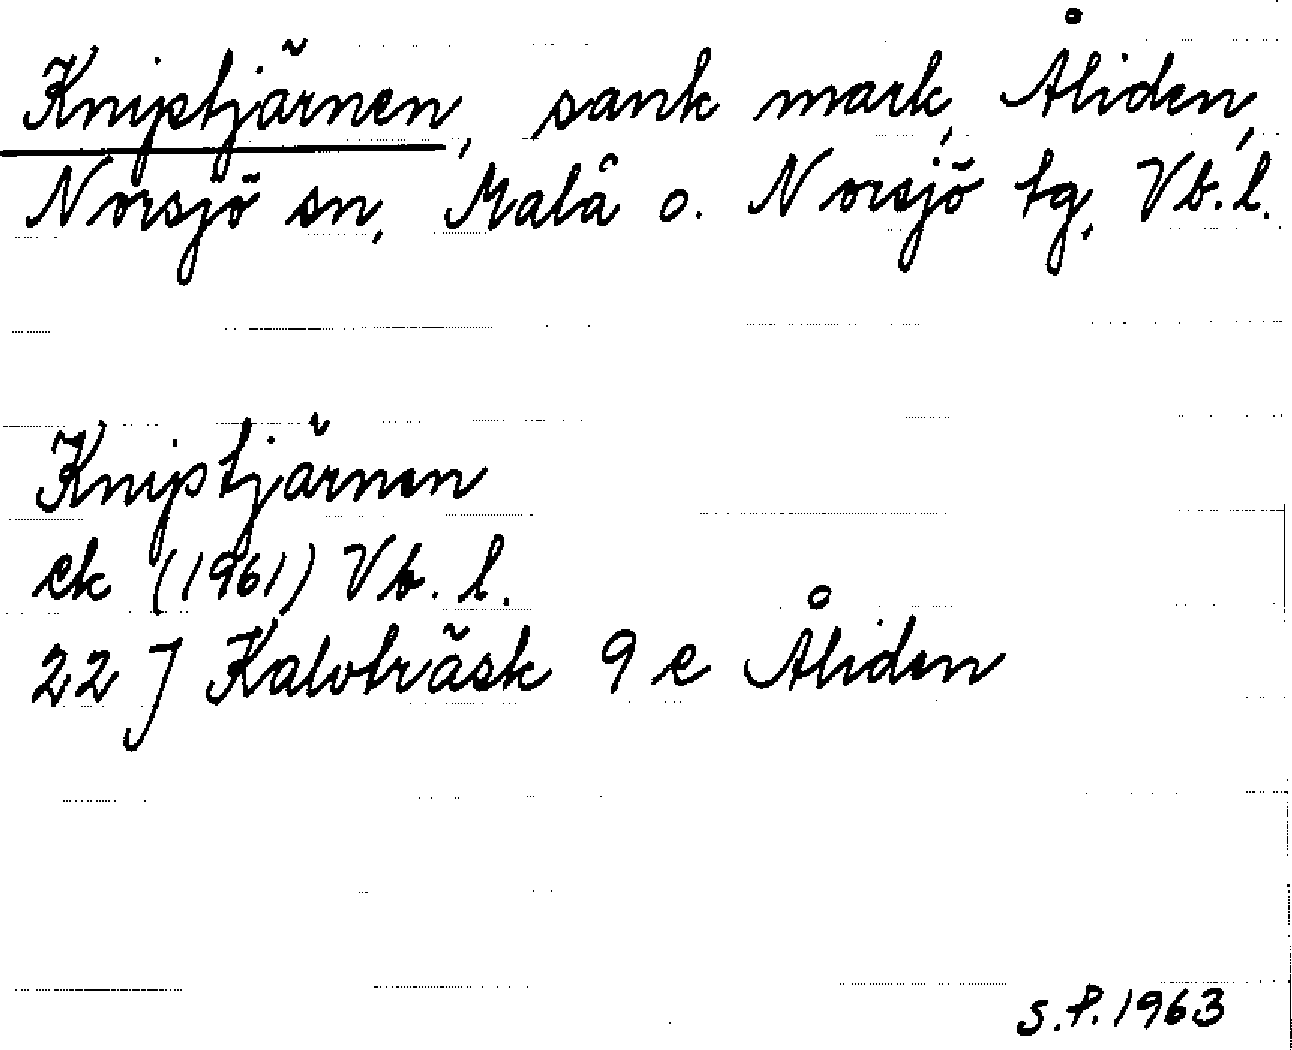 Kniptjärnen, sank mark, Åliden,
Norsjö sn, Malå o. Norsjö tg, Vb. l.
Kniptjärnen
ek (1961) Vb. l.
22 J Kalvträsk 9 e Åliden
S.P. 1963